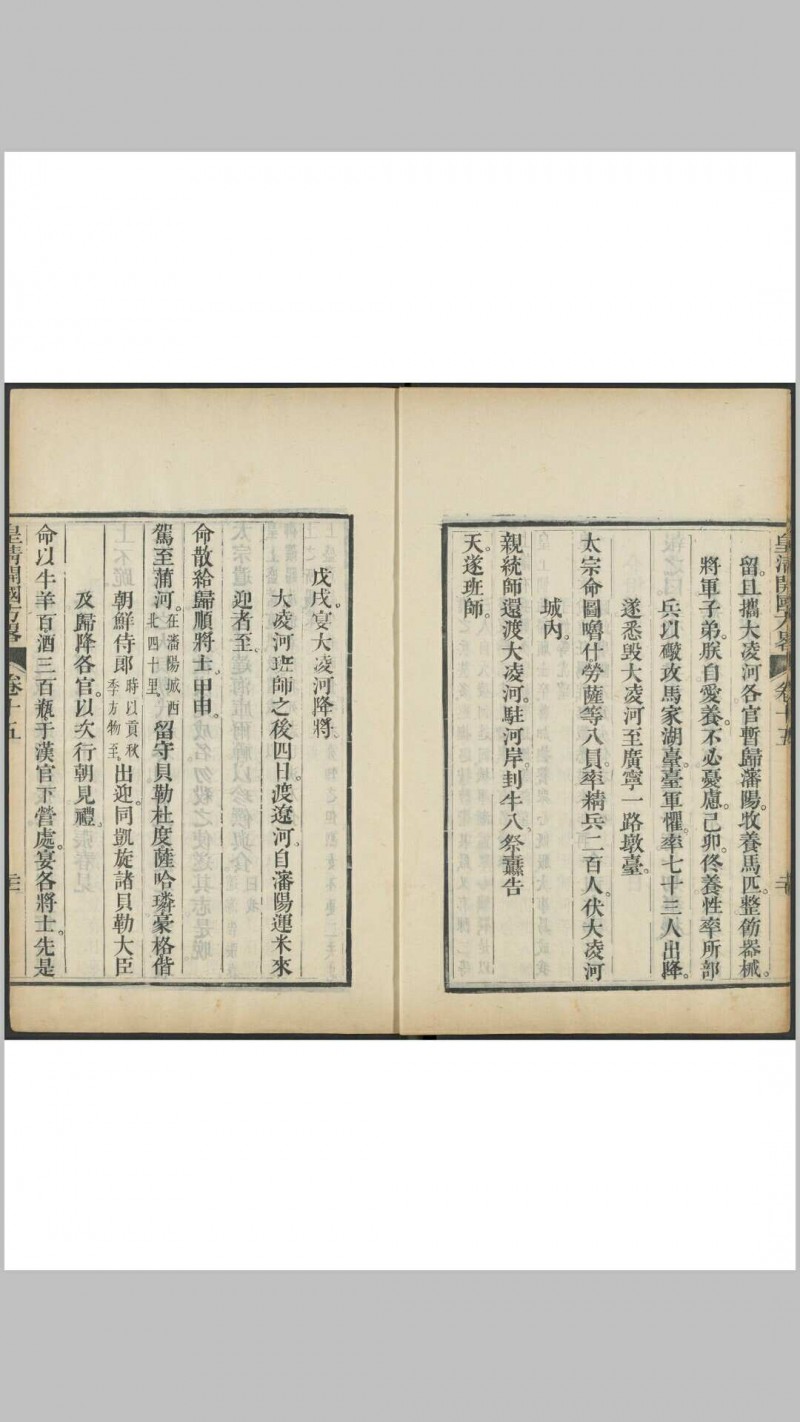 皇清開國方畧 卷十五
留。且攜大凌河各官暫歸瀋陽。牧養馬匹。整飭器械。
將軍子弟。朕自愛養。不必憂慮。己卯。佟養性率所部
兵以礮攻馬家湖臺。臺軍懼。率七十三人出降。
遂悉毀大凌河至廣寧一路墩臺。
太宗命圖嚕什勞薩等八員。率精兵二百人。伏大凌河
城內。
親統師還渡大凌河。駐河岸。刲牛八。祭纛告
天。遂班師。
戊戌。宴大凌河降將。
大凌河班師之後四日。渡遼河。自瀋陽運米來
迎者至。
命散給歸順將士。甲申。
駕至蒲河。在瀋陽城西北四十里。留守貝勒杜度薩哈璘豪格偕
朝鮮侍郎時以貢秋季方物至。出迎。同凱旋諸貝勒大臣
及歸降各官。以次行朝見禮。
命以牛羊百酒三百瓶于漢官下營處。宴各將士。先是
皇清開國方畧 卷十五